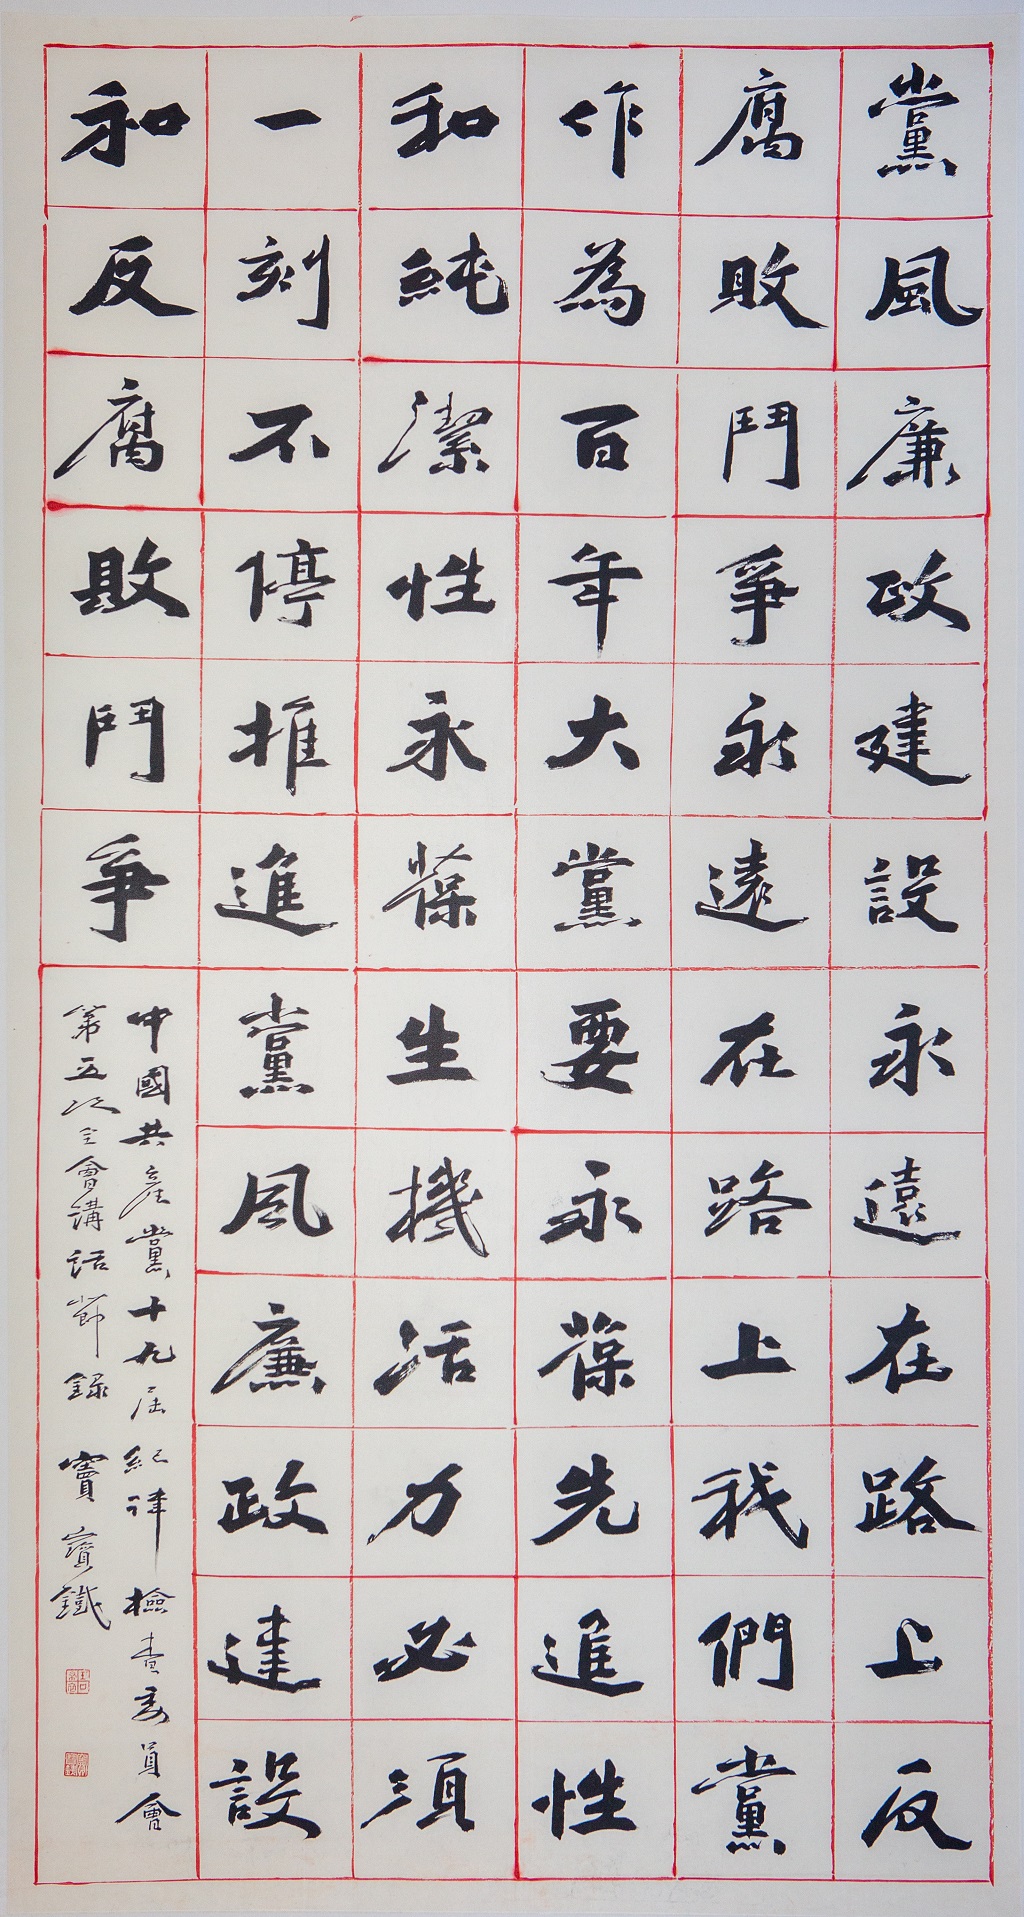 黨風廉政建設永遠在路上反
腐敗鬥爭永遠在路上我們黨
作為百年大黨要永葆先進性
和純潔性永葆生機活力必須
一刻不停推進黨風廉政建設
和反腐敗鬥爭
中國共產黨十九屆紀律檢查委員會
第五次全會講話節錄 竇寶鐵